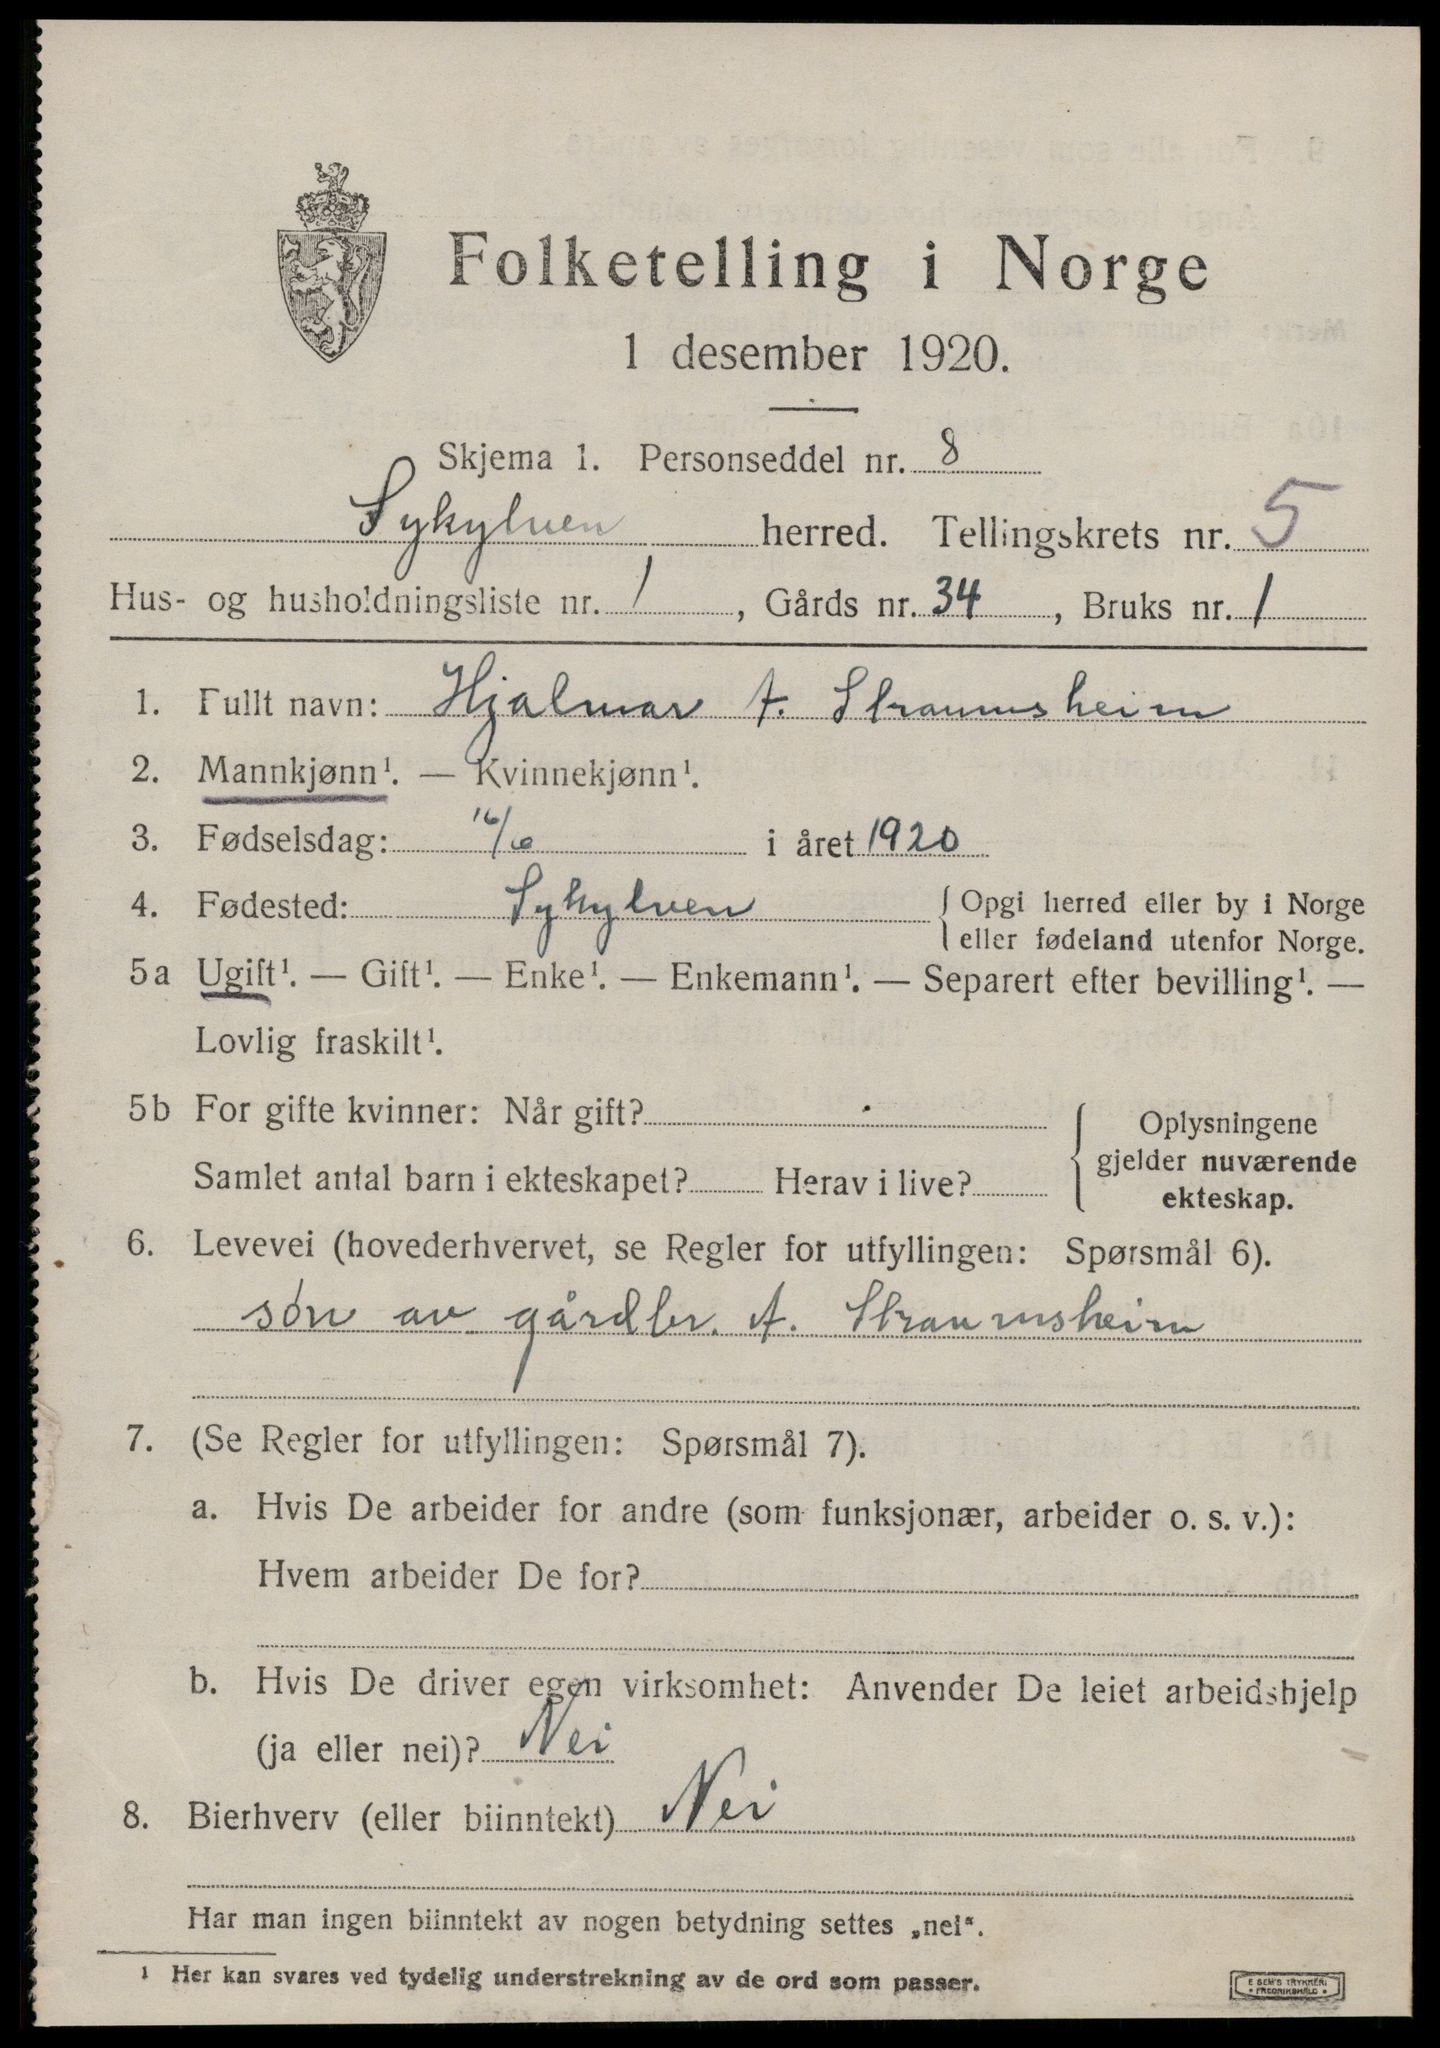 Folketelling i Norge
1 desember 1920.
Skjema 1. Personseddel nr. 8
Sykylven herred. Tellingskrets nr. 5
Hus- og husholdningsliste nr. 1, Gårds nr. 34, Bruks nr. 1
1. Fullt navn: Hjalmar A. Straumsheim
2. Mannkjønn¹. — Kvinnekjønn¹.
3. Fødselsdag: 16/6 i året 1920
4. Fødested: Sykylven { Opgi herred eller by i Norge
eller fødeland utenfor Norge.
5a Ugift¹. — Gift¹. — Enke¹. — Enkemann¹. — Separert efter bevilling¹. —
Lovlig fraskilt¹.
5b For gifte kvinner: Når gift?
Samlet antal barn i ekteskapet? Herav i live?
{ Oplysningene
gjelder nuværende
ekteskap.
6. Levevei (hovederhvervet, se Regler for utfyllingen: Spørsmål 6).
søn av gårdbr. A. Straumsheim
7. (Se Regler for utfyllingen: Spørsmål 7).
a. Hvis De arbeider for andre (som funksjonær, arbeider o. s. v.):
Hvem arbeider De for?
b. Hvis De driver egen virksomhet: Anvender De leiet arbeidshjelp
(ja eller nei)? Nei
8. Bierhverv (eller biinntekt) Nei
Har man ingen biinntekt av nogen betydning settes „nei“.
¹ Her kan svares ved tydelig understrekning av de ord som passer.
E SEM'S TRYKKERI
• FREDRIKSHALD •